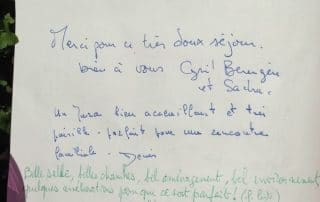 Merci pour ce très doux séjour.
bien à vous Cyril Berengère
et Sacha.
Un Jura bien accueillant et très
paisible. parfait pour une rencontre
familiale. Denis
Belle salle, belles chambres, bel aménagement, bel environnement
quelques améliorations pour que ce soit parfait !